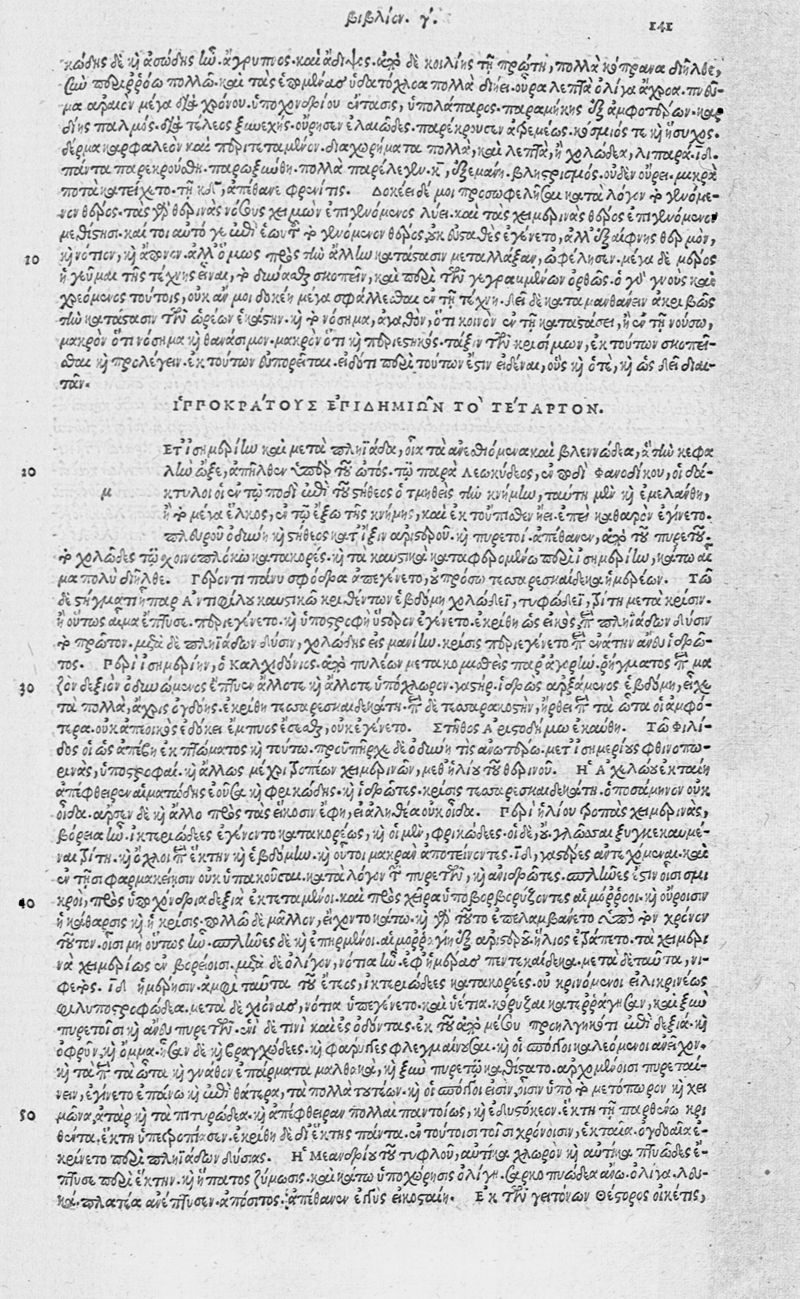 βιβλίον. γ΄. 141
κώδης δὲ καὶ ἀσώδης ἦν. ἄγρυπνος. καὶ ἄδιψος. ἀπὸ δὲ κοιλίης τῇ πρώτῃ, πολλὰ κόπρανα διῆλθε,
ξὺν περιῤῥόῳ πολλῷ. καὶ τὰς ἑπομένας ὑδατόχλοα πολλὰ διῄει. οὖρα λεπτὰ ὀλίγα ἄχροα. πνεῦ-
μα ἀραιὸν μέγα διὰ χρόνου. ὑποχονδρίου ἔντασις, ὑπολάπαρος. παραμήκης ἐξ ἀμφοτέρων. καρ
δίης παλμός. διὰ τέλεος ξυνεχής. οὔρησεν ἐλαιῶδες. παρέκρουσεν ἀτρεμέως. κόσμιός τε καὶ ἥσυχος.
δέρμα καρφαλέον καὶ περιτεταμένον. διαχωρήματα πολλὰ, καὶ λεπτὰ, ἢ χολώδεα, λιπαρά. ιδ.
πάντα παρεκρούσθη. παρωξύνθη. πολλὰ παρέλεγεν. κ, ἐξεμάνη. βληστρισμός. οὐδὲν οὔρει. μικρὰ
ποτὰ κατείχετο. τῇ κδ, ἀπέθανε φρενῖτις. Δοκέει δέ μοι προσωφελῆσαι κατὰ λόγον τὸ γενόμε-
νον θέρος. τὰς γὰρ θερινὰς νόσους χειμὼν ἐπιγενόμενος λύει. καὶ τὰς χειμερινὰς θέρος ἐπιγενόμενον
μεθίστησι. καίτοι αὐτό γε ἐπὶ ἑωυτοῦ τὸ γενόμενον θέρος, οὐκ εὐσταθὲς ἐγένετο, ἀλλ' ἐξαίφνης θερμὸν,
10 καὶ νότιον, καὶ ἄπνοον. ἀλλ' ὅμως πρὸς τὴν ἄλλην κατάστασιν μεταλλάξαν, ὠφέλησεν. μέγα δὲ μέρος
ἡγεῦμαι τῆς τέχνης εἶναι, τὸ δύνασθαι σκοπεῖν, καὶ περὶ τῶν γεγραμμένων ὀρθῶς. ὁ γὰρ γνοὺς καὶ
χρεόμενος τούτοις, οὐκ ἄν μοι δοκέῃ μέγα σφάλλεσθαι ἐν τῇ τέχνῃ. δεῖ δὲ καταμανθάνειν ἀκριβῶς
τὴν κατάστασιν τῶν ὡρέων ἑκάστην. καὶ τὸ νόσημα, ἀγαθὸν, ὅτι κοινὸν ἐν τῇ καταστάσει, ἢ ἐν τῇ νούσῳ,
μακρὸν ὅτι νόσημα καὶ θανάσιμον. μακρὸν ὅτι καὶ περιεστηκὸς. τάξιν τῶν κρισίμων, ἐκ τούτων σκοπεῖ-
σθαι καὶ προλέγειν. ἐκ τούτων εὐπορέεται. εἰδότι περὶ τούτων ἔστιν εἰδέναι, οὓς καὶ ὅτε, καὶ ὡς δεῖ διαι-
τᾶν.
ἹΠΠΟΚΡΑΤΟΥΣ ἘΠΙΔΗΜΙΩ͂Ν ΤΟ` ΤΕ´ΤΑΡΤΟΝ.
Ετ' ἰσημερίην καὶ μετὰ πληϊάδα, οἷα τὰ ἀνεσθιόμενα καὶ βλεννώδεα, ἃ τὴν κεφα
20 λὴν ὦξε, ἀπῆλθεν ὑπὲρ τοῦ ὠτός. τῷ παρὰ Λεωκύδεος, ἐν ποδὶ Φανοδίκου, οἱ δά-
μ κτυλοι οἱ ἐν τῷ ποδὶ ἐπὶ τοῦ στήθεος ὁ τμηθεὶς τὴν κνήμην, ταύτῃ μὲν καὶ ἐμελάνθη,
ᾗ τὸ μέγα ἕλκος, ἐν τῷ ἔξω τῆς κνήμης, καὶ ἐκ τοὔπισθεν ᾔει. ἐπεὶ καθαρὸν ἐγένετο.
πλευροῦ ὀδύνη καὶ στήθεος κατ' ἴξιν ἀριστεροῦ. καὶ πυρετοί. ἀπέθανεν, ἀπὸ τοῦ πυρετοῦ.
τὸ χολῶδες τῷ χοινοπλόκῳ κατακορές. καὶ τὰ καυστικὰ καταφερομένῳ περὶ ἰσημερίην, κάτω αἷ
μα πολὺ διῆλθε. Γέροντι πάνυ σφόδρα ἀπεγένετο, οὐ πρόσω τεσσαρεσκαίδεκα ἡμερέων. Τῷ
δὲ στήγματι παρ' Ἀντιφίλου καυστικῷ κριθέντων ἑβδόμῃ χολώδει, τυφώδει, τρίτῃ μετὰ κρίσιν.
ἢ οὕτως αἷμα ἔπτυσε. περιεγένετο. καὶ ὑποστροφὴ ὕστερον ἐγένετο. ἐκρίθη ὡς εἰκὸς περὶ πληϊάδων δύσιν
τὸ πρῶτον. μετὰ δὲ πληϊάδων δύσιν, χολώδης εἰς μανίην. κρίσις περιεγένετο περὶ ἐνάτην ἄνευ ἱδρῶ-
τος. Περὶ ἰσημερίην, ὁ Καλχιδόνιος. ἀπὸ πυλέων μετακομισθεὶς παρ' ἀγορὴν. ῥήγματος περὶ μα
30 ζὸν δεξιὸν ὀδυνώμενος ἔπτυεν ἄλλοτε καὶ ἄλλοτε ὑπόχλωρον. γαστήρ. ἱδρὼς ἀρξάμενος ἑβδόμῃ, εἶχε
τὰ πολλὰ, ἄχρις ὀγδόης. ἐκρίθη τεσσαρεσκαιδεκάτῃ. περὶ δὲ τεσσαρακοστὴν, ἤρθει παρὰ τὰ ὦτα οἱ ἀμφό-
τερα. οὐκ ἀπεοικὸς ἐδόκει ἔμπυος ἔσεσθαι, οὐκ ἐγένετο. Στῆθος Ἀριστοδήμῳ ἐκαύθη. Τῷ Φιλί-
δος οἱ ὡς ἀπέβη ἐκ πτώματος καὶ τούτῳ. προϋπῆρχε δὲ ὀδύνη τῆς ἀνωτέρω. μετ' ἰσημερίης φθινοπω-
ρινάς, ὑποστροφαί. καὶ ἄλλως μέχρι τροπέων χειμερινῶν, μεθ' ἡλίου τοῦ θερινοῦ. Ἡ Ἀχελώου ἑκταίη
ἀπέφθειρεν αἱματώδης ἐοῦσα καὶ φρικώδης. καὶ ἱδρῶτες. κρίσις τεσσαρεσκαιδεκάτῃ. ὁποσάμηνον οὐκ
οἶδα. ἄρσεν δὲ καὶ ἄλλο πρὸς τὰς εἴκοσιν ἔφη, εἰ ἀληθέα οὐκ οἶδα. Περὶ ἡλίου τροπὰς χειμερινὰς,
βόρεια ἦν. ἰκτεριώδεες ἐγένοντο κατακορέως, καὶ οἱ μὲν, φρικώδεες. οἱ δὲ, οὔ. γλῶσσαι ξυγκεκαυμέ-
ναι τρίτῃ. καὶ ὄχλοι περὶ ἕκτην καὶ ἑβδόμην. καὶ οὗτοι μακρὰν ἀποτείνοντες. ιδ, γαστέρες αὖτε ἐχόμεναι. καὶ
ἐν τῇσι φαρμακείῃσιν οὐχ ὑπακοῦσαι. κατὰ λόγον τῶν πυρετῶν, καὶ ἀνιδρῶτες. σπλῆνες ἔστιν οἷσι σμι
40 κροί, πρὸς ὑποχόνδρια δεξιὰ ἐκτεταμένοι. καὶ πρὸς χεῖρα ὑποβορβορύζοντες αἱμόῤῥοοι. καὶ οὔροισιν
ἡ κάθαρσις καὶ ἡ κρίσις. πολλῷ δὲ μᾶλλον, εἴχοντο κάτω. καὶ γὰρ τοῦτο ἐπελαμβάνετο ὑπὸ τὸν χρόνον
τοῦτον. οἷσι μὴ οὕτως ἦν. σπλῆνες δὲ καὶ ἐπηρμένοι. αἱμοῤῥαγίη ἐξ ἀριστεροῦ. ἥλιος ἐξάπτετο. τὰ χειμερι
νὰ χειμερίως ἐν βορείοισι. μετὰ δὲ ὀλίγον, νότια ἦν. ἐφ' ἡμέρας πεντεκαίδεκα. μετὰ δὲ ταῦτα, νι-
φετὸς. ιδ ἡμέρῃσιν. ἀμφὶ ταῦτα τοῦ ἔτεος, ἰκτεριώδεες κατακορέες. οὐ κρινόμενοι εἰλικρινέως
φιλυποστροφώδεα. μετὰ δὲ χιόνας, νότια ὑπεγένετο. καὶ ὑέτια. κόρυζαι κατεῤῥάγησαν, καὶ ξὺν
πυρετοῖσι καὶ ἄνευ πυρετῶν. ἑνὶ δέ τινι καὶ ἐς ὀδόντας. ἐκ τοῦ ἀπὸ μέσου προηληγκότι ἐπὶ δεξιά. καὶ
ὀφρύν. καὶ ὄμμα. ἦσαν δὲ καὶ βραγχώδεες. καὶ φάρυγγες φλεγμαίνουσαι. καὶ οἱ σπόγγοι καλεόμενοι ἀνεῖχον.
καὶ τὰ παρὰ τὰ ὦτα καὶ γνάθον ἐπάρματα μαλθακὰ, καὶ ξὺν πυρετῷ καθίστατο. ἀρχομένοισι πυρεταί-
νειν, ἐγίνετο ἐπάνω καὶ ἐπὶ θάτερα, τὰ πολλὰ τουτέων. καὶ οἱ σπόγγοι εἰσὶν, οἷσιν ὑπὸ τὸ μετόπωρον καὶ χει
50 μῶνα. ἀτὰρ καὶ τὰ πιτυρώδεα. καὶ ἀπέφθειραν πολλαὶ παντοίως, καὶ ἐδυστόκεον. ἕκτῃ τῇ παρθένῳ κρι
θέντα, ἕκτῃ ὑπετροπίασεν. ἐκρίθη δὲ δι' ἕκτης πάντα. ἐν τούτοισι τοῖσι χρόνοισιν, ἑκταῖα. ὀγδοαῖα ἐ-
κρίνετο περὶ πληϊάδων δύσιας. Ἡ Μεανδρίου τοῦ τυφλοῦ, αὐτίκα χλωρὸν καὶ αὐτίκα πτυῶδες ἔ-
πτυσε περὶ ἕκτην. καὶ ἥπατος ζύμωσις. καὶ κάτω ὑποχώρησις ὀλίγη. σαρκοπυώδεα ἄνω. ὀλίγα. λευ-
κά. πλατέα ἀνέπτυσεν. ἀπόσιτος. ἀπέθανεν ἐγγὺς εἰκοσταίη. Ἐκ τῶν γειτόνων Θέστορος οἰκέτις,